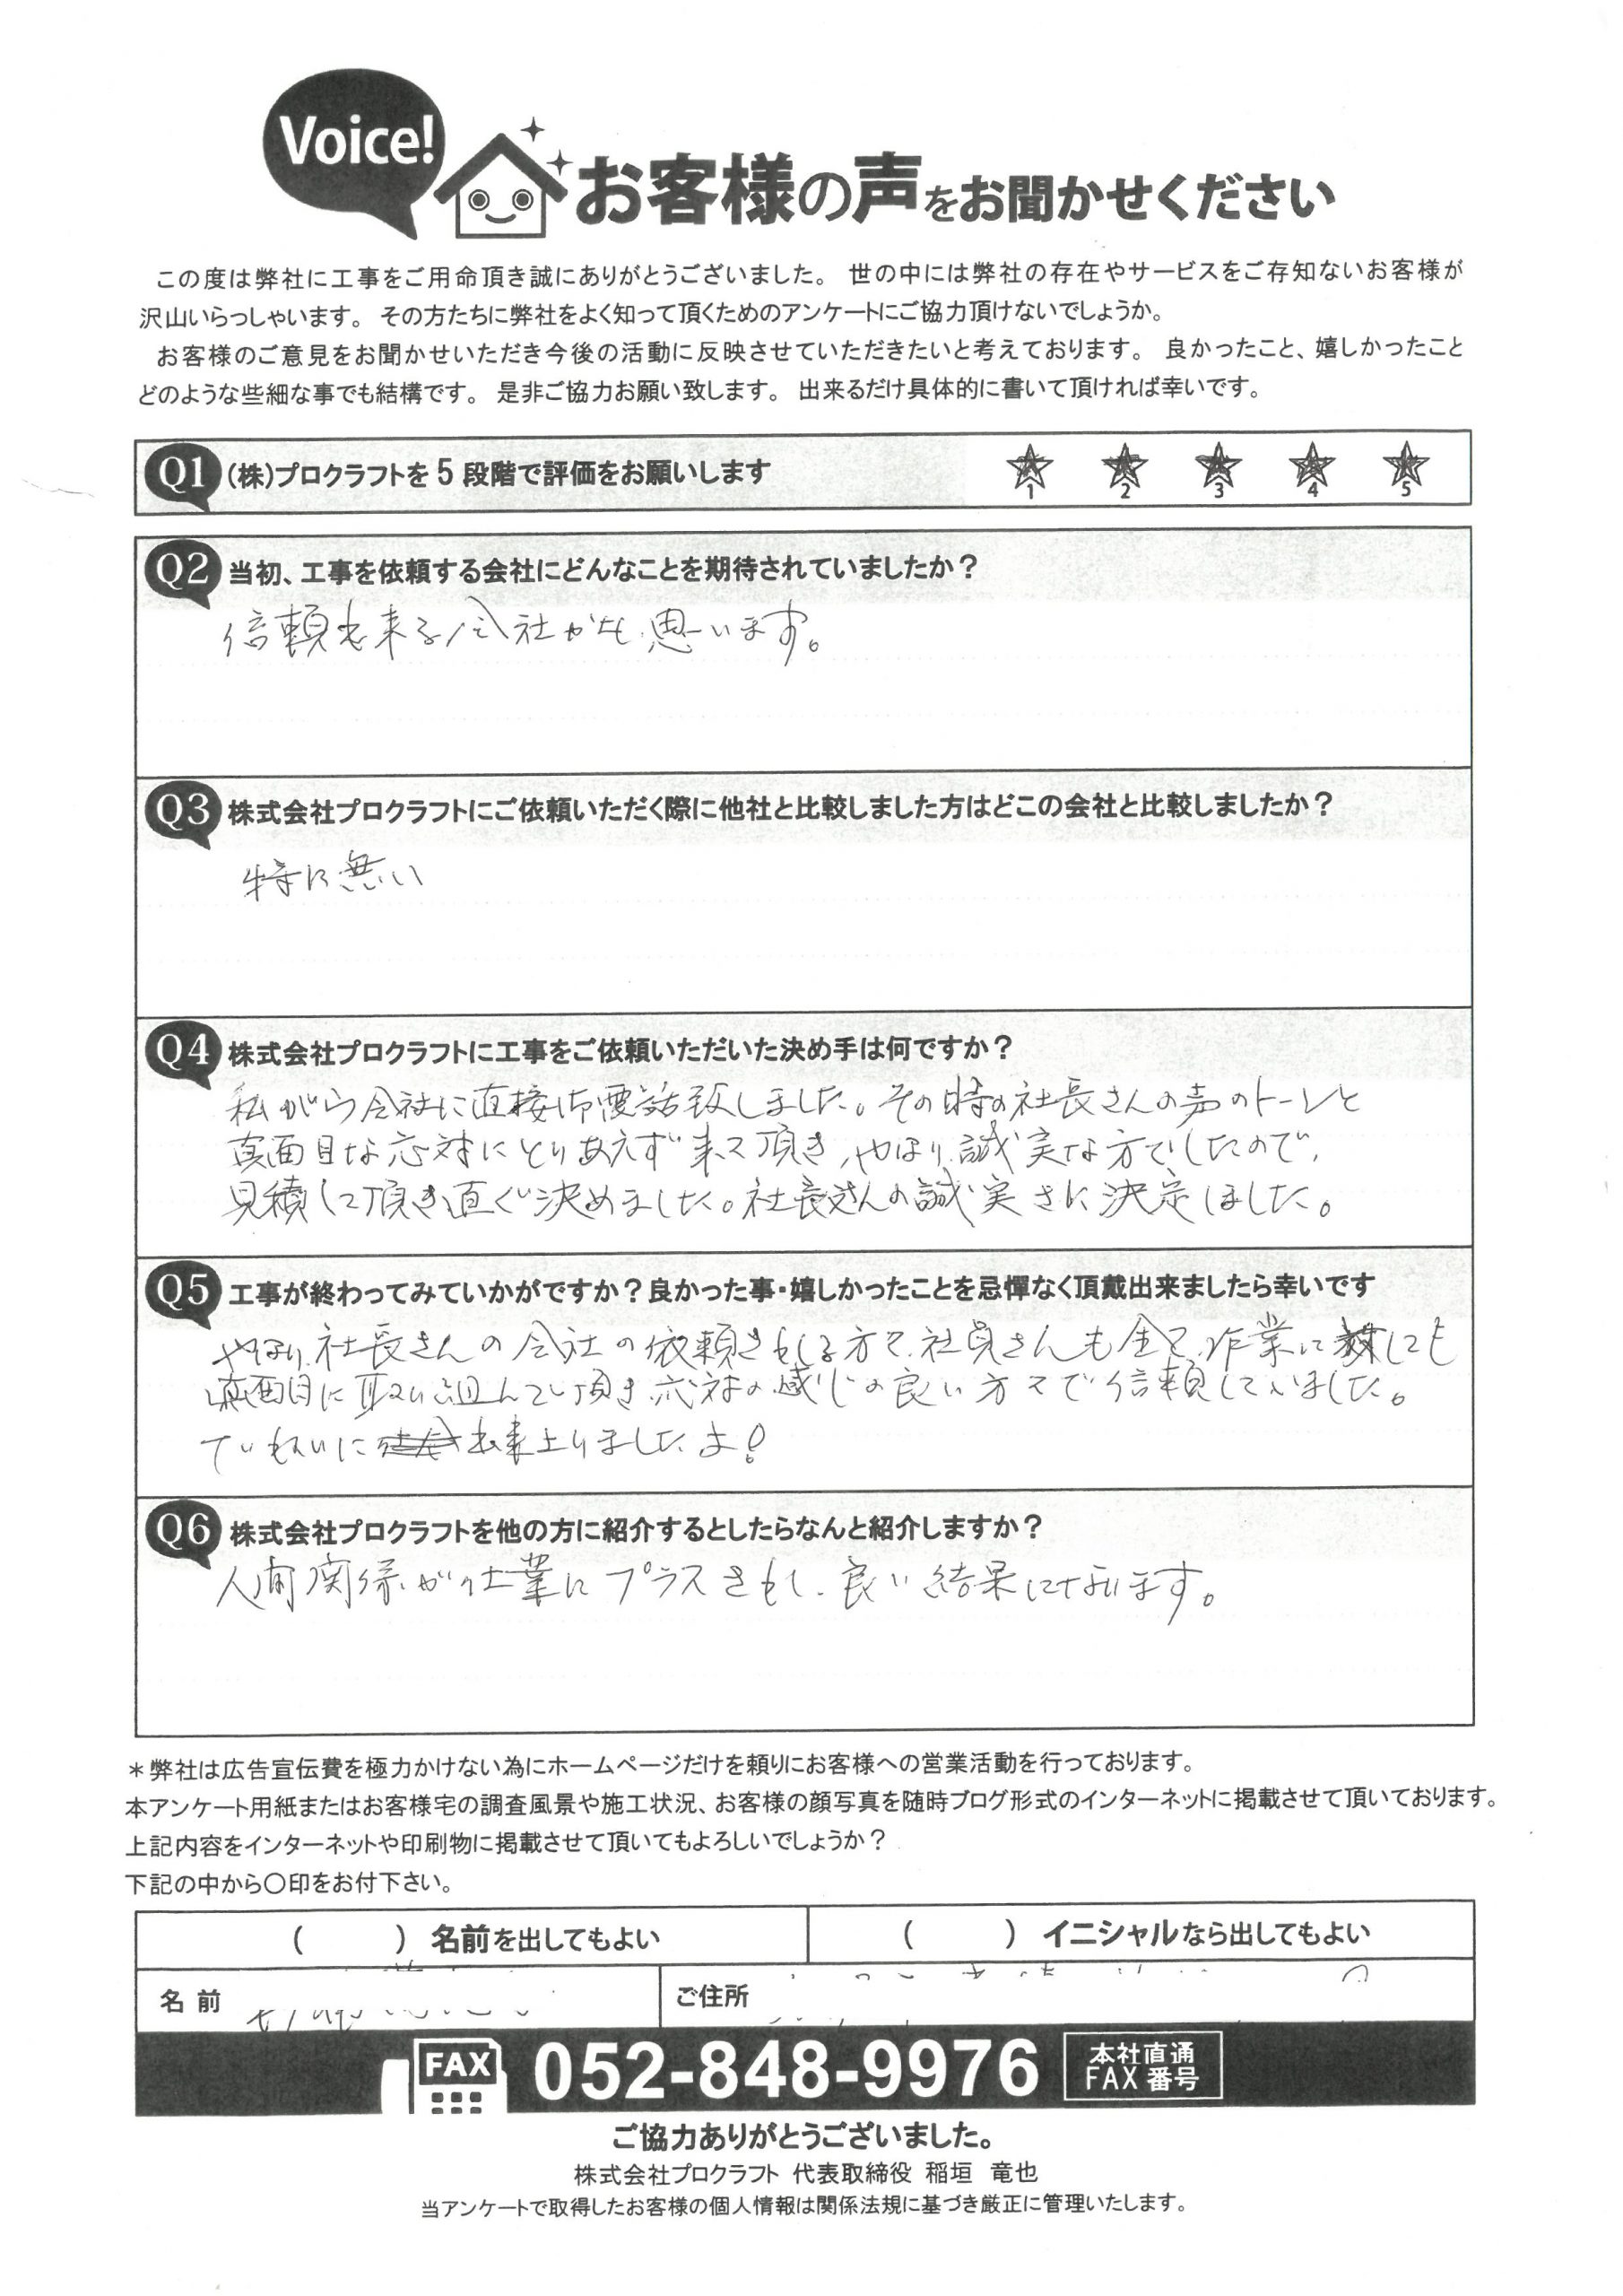 Voice!
お客様の声をお聞かせください
この度は弊社に工事をご用命頂き誠にありがとうございました。 世の中には弊社の存在やサービスをご存知ないお客様が
沢山いらっしゃいます。 その方たちに弊社をよく知って頂くためのアンケートにご協力頂けないでしょうか。
お客様のご意見をお聞かせいただき今後の活動に反映させていただきたいと考えております。 良かったこと、嬉しかったこと
どのような些細な事でも結構です。 是非ご協力お願い致します。 出来るだけ具体的に書いて頂ければ幸いです。
Q1 (株)プロクラフトを5段階で評価をお願いします
1 2 3 4 5
Q2 当初、工事を依頼する会社にどんなことを期待されていましたか?
信頼出来る会社かを思います。
Q3 株式会社プロクラフトにご依頼いただく際に他社と比較しました方はどこの会社と比較しましたか?
特に無い
Q4 株式会社プロクラフトに工事をご依頼いただいた決め手は何ですか?
私から会社に直接お電話致しました。その時の社長さんの声のトーンと
真面目な応対にとりあえず来て頂き、やはり誠実な方でしたので、
見積して頂き直ぐ決めました。社長さんの誠実さに決定しました。
Q5 工事が終わってみていかがですか?良かった事・嬉しかったことを忌憚なく頂戴出来ましたら幸いです
やはり、社長さんの会社の依頼さもしる方で、社員さんも全て、作業にしても
真面目に取り組んで頂き応対の感じの良い方々で信頼していました。
ていねいに出来上りましたよ!
Q6 株式会社プロクラフトを他の方に紹介するとしたらなんと紹介しますか?
人間関係が仕業にプラスさもし、良い結果になります。
*弊社は広告宣伝費を極力かけない為にホームページだけを頼りにお客様への営業活動を行っております。
本アンケート用紙またはお客様宅の調査風景や施工状況、お客様の顔写真を随時ブログ形式のインターネットに掲載させて頂いております。
上記内容をインターネットや印刷物に掲載させて頂いてもよろしいでしょうか?
下記の中から〇印をお付下さい。
( ) 名前を出してもよい ( ) イニシャルなら出してもよい
名前 ご住所
FAX 052-848-9976 本社直通
FAX番号
ご協力ありがとうございました。
株式会社プロクラフト 代表取締役 稲垣 竜也
当アンケートで取得したお客様の個人情報は関係法規に基づき厳正に管理いたします。